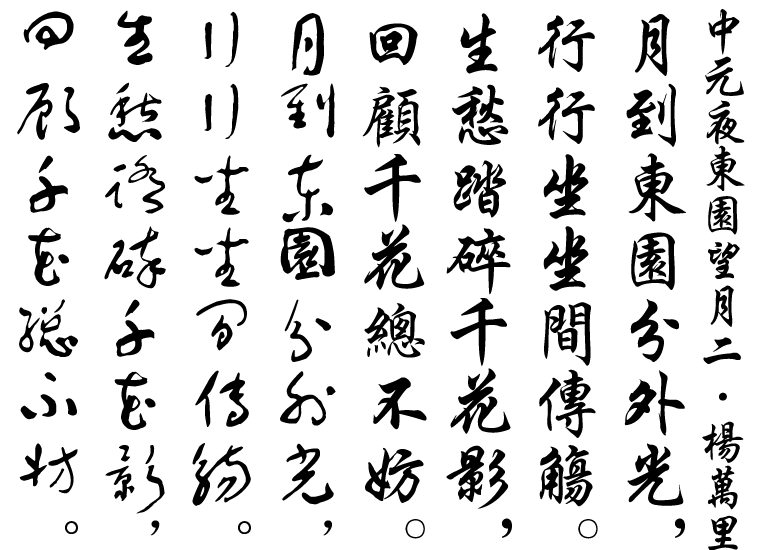 中元夜東園望月二·楊萬里
月到東園分外光，
行行坐坐間傳觴。
生愁踏碎千花影，
回顧千花總不妨。
月到东園分外光，
行行坐坐间傳觴。
生愁踏碎千花影，
回顾千花總不妨。